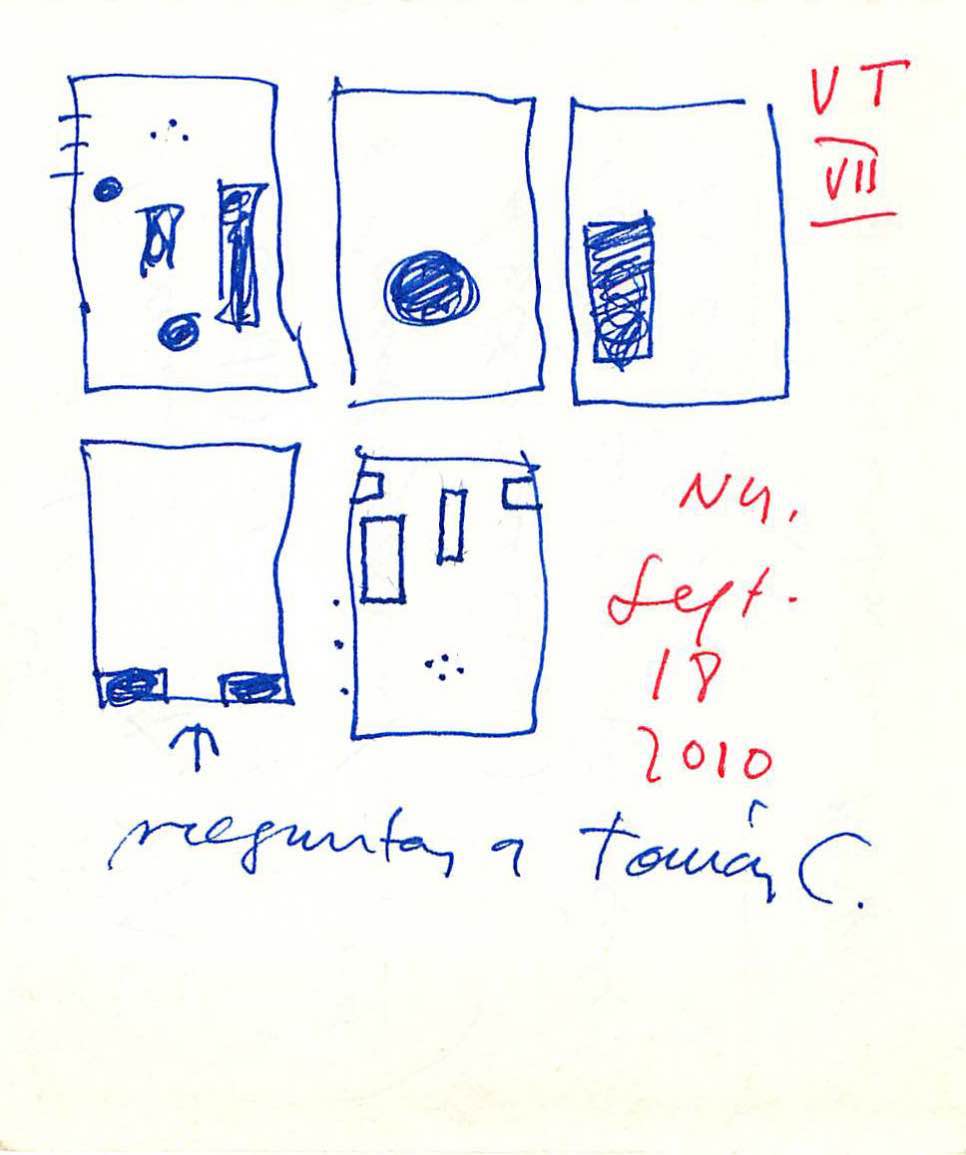 VT
VII
NY.
Sept.
18
2010
preguntas a Tomás C.